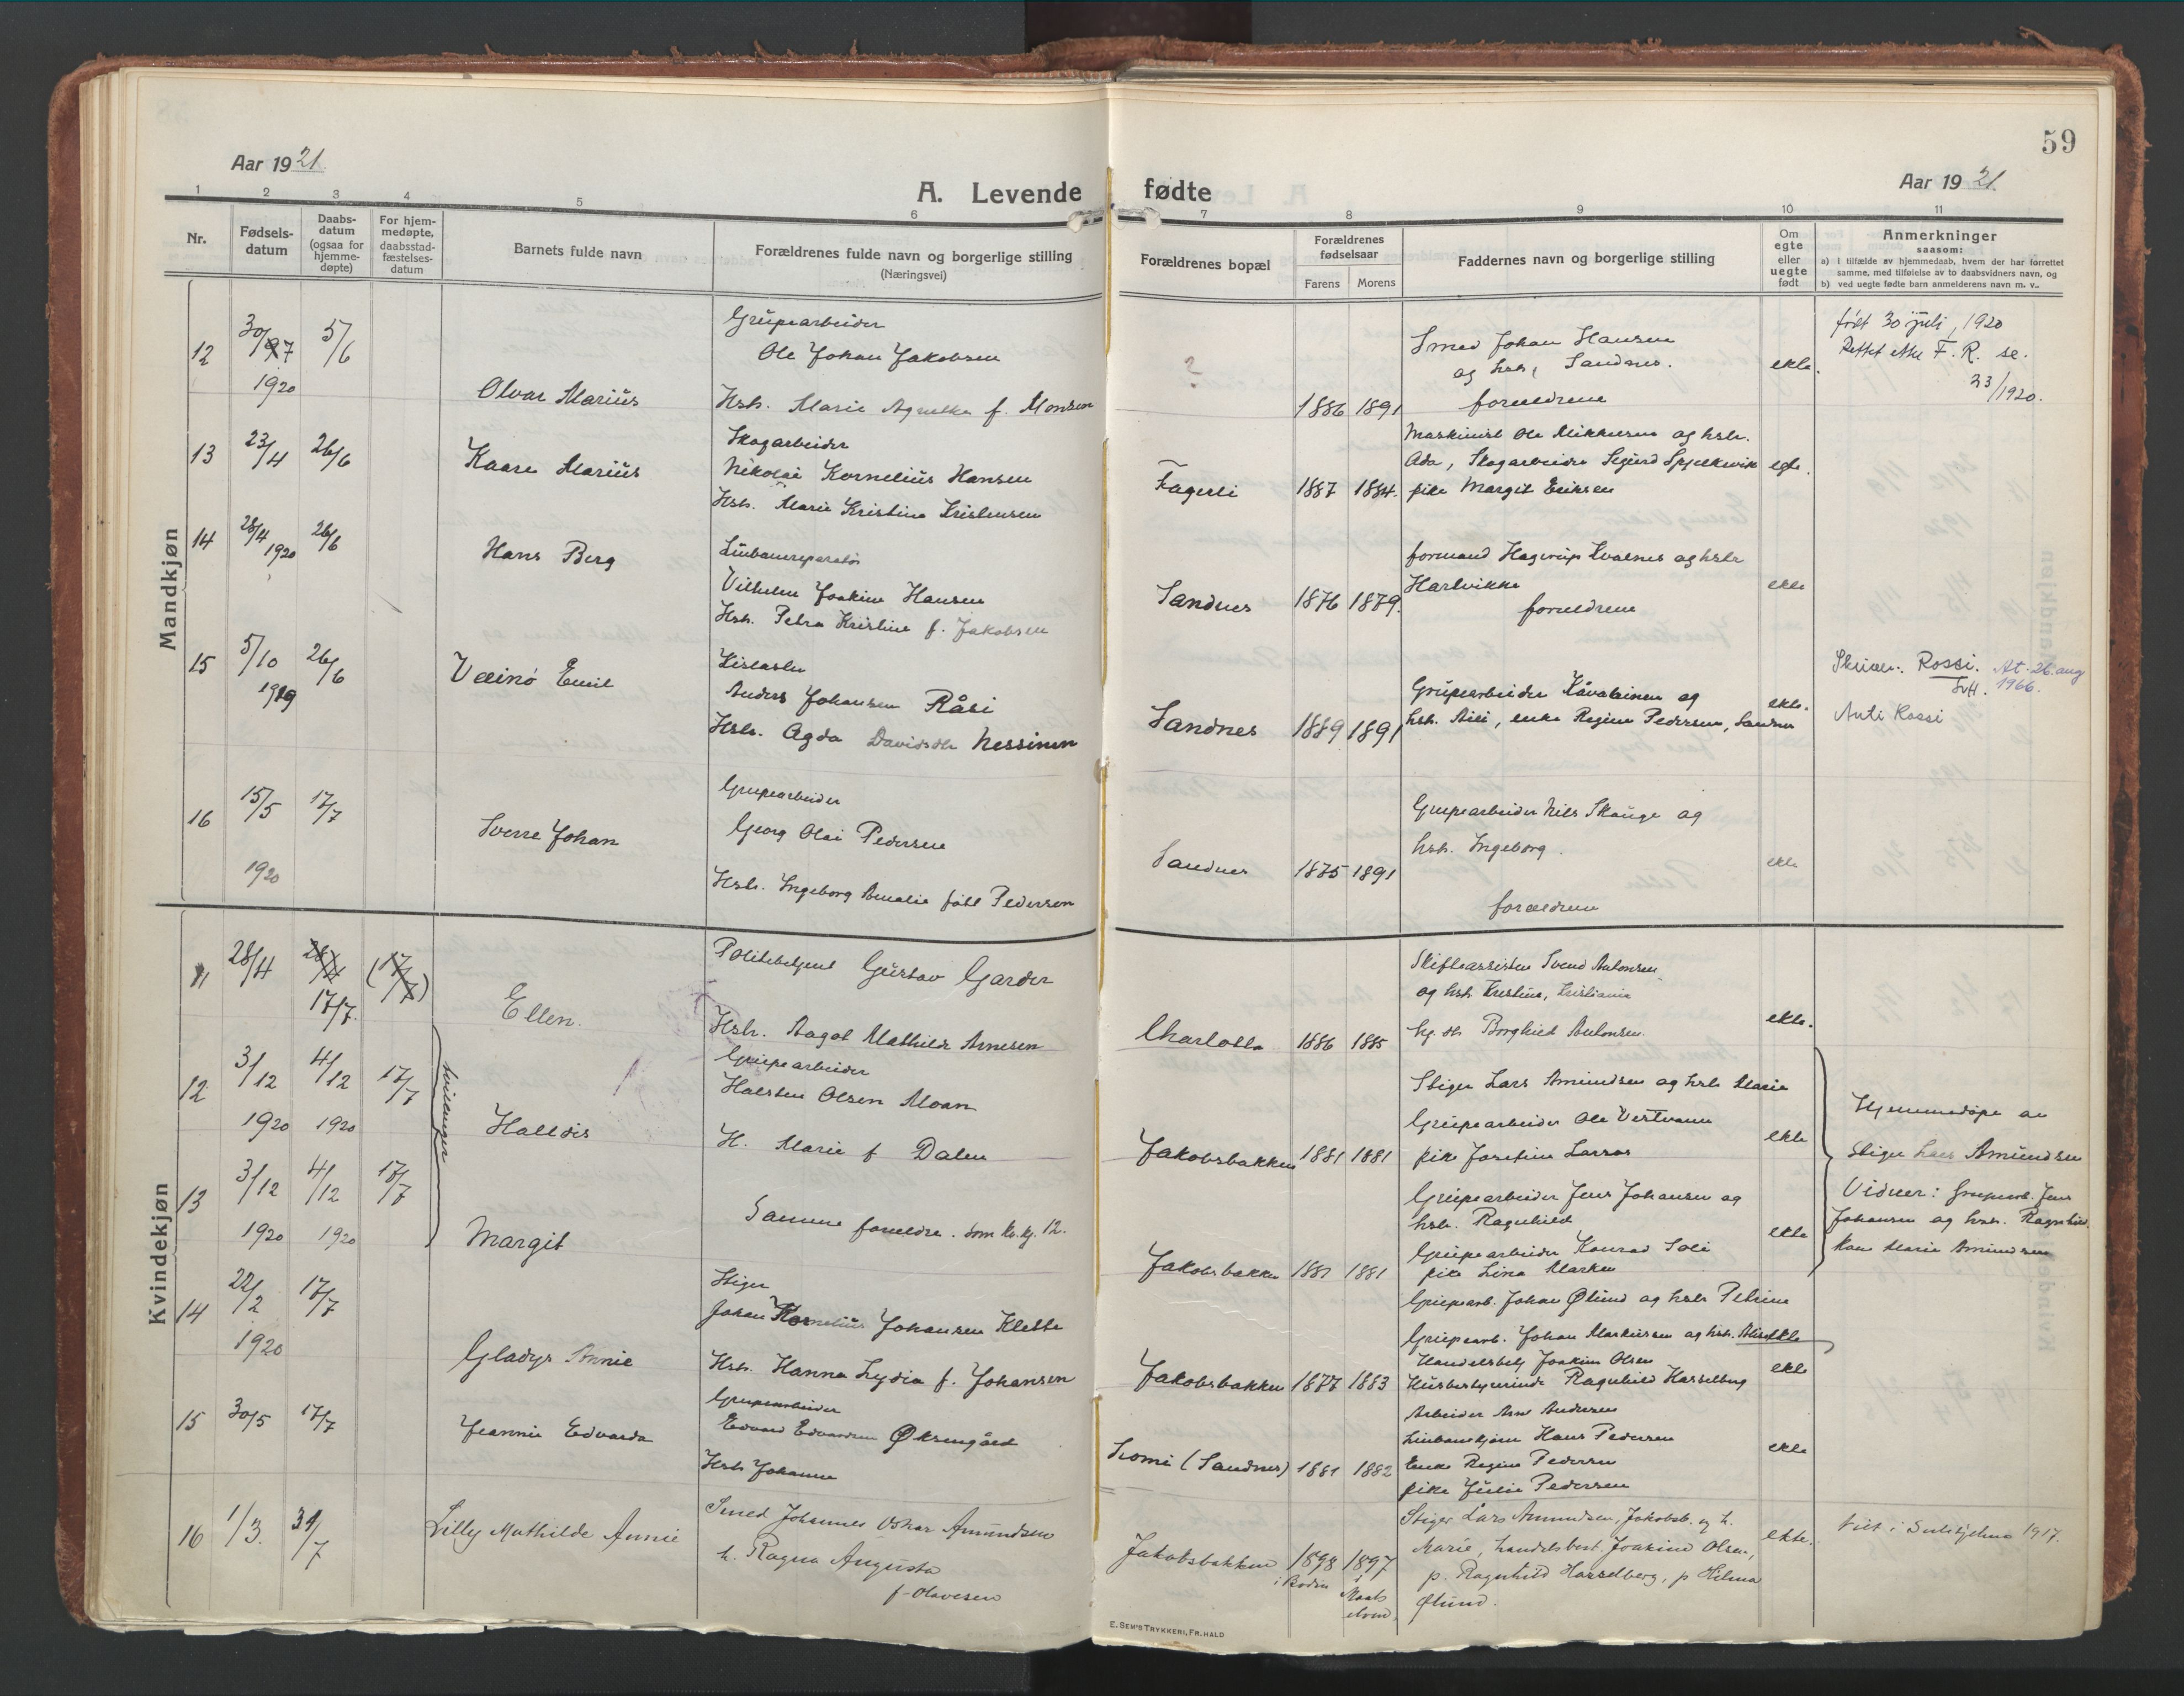 59
Aar 1921.
A. Levende fødte
Aar 1921.
1 2 3 4 5 6 7 8 9 10 11
Nr.
Fødsels-
datum
Daabs-
datum
(ogsaa for
hjemme-
døpte)
For hjem-
medøpte,
daabsstad-
fæstelses-
datum
Barnets fulde navn
Forældrenes fulde navn og borgerlige stilling
(Næringsvei)
Forældrenes bopæl
Forældrenes
fødselsaar
Farens Morens
Faddernes navn og borgerlige stilling
Om
egte
eller
uegte
født
Anmerkninger
saasom:
a) I tilfælde av hjemmedaab, hvem der har forrettet
samme, med tilføielse av to daabsvidners navn, og
b) ved uegte fødte barn anmelderens navn m. v..
Mandkjøn
12 30/7 1920 5/6
Olvar Marius
Grubearbeider
Ole Johan Jakobsen
Hstr. Marie f. Monsen
?
1886 1891
Smed Johan Hansen
og hstr, Sandnes.
foreldrene
ekte.
født 30 juli, 1920
Rettet etter F. R. se.
23/1920.
13 23/4 26/6
Kaare Marius
Skogarbeider
Nikolai Kornelius Hansen
Hstr. Marie Kristine Kristensen
Fagerli
1887 1884.
Maskinist Ole Mikkelsen og hstr.
Ada, Skogarbeider Sigurd
pike Margit Eriksen
egte.
14 28/4 1920 26/6
Hans Berg
Linbanereparatør
Vilhelm Joakim Hansen
Hstr. Petra Kristine f. Jakobsen
Sandnes
1876 1879.
formand Hagerup Kvalnes og hstr
Hartvikke
foreldrene
ekte
15 5/10 1919 26/6
Veeinö Emil
Anders Johansen Råsi
Hstr. Agda Davidsdtr Nessinen
Sandnes
1889 1891
Grubearbeider Kåvalainen og
hstr. Aili, enke Regine Pedersen, Sandnes
ekte.
Skriver: Rossi. At. 26. aug
1966.
Anti Rossi
16 15/5 1920 17/7
Sverre Johan
Grubearbeider
Georg Olai Pedersen
Hstr. Ingeborg Amalie født Pedersen
Sandnes
1875 1891
Grubearbeider Nils Skauge og
hstr. Ingeborg.
foreldrene
ekte
Kvindekjøn
11 28/4 17/7. (17/7)
Ellen.
Politibetjent Gustav Garder
Hstr. Aagot Mathilde Arnesen
Charlotta
1886 1885
Skifteassistent Svend Antonsen
og hstr Kristine, Kristiania
Borghild Antonsen.
ekte.
12 3/12 1920 4/12 1920 17/7
tvillinger
Halldis
Grubearbeider
Halsten Olsen Moan
H. Marie f Dalen
Jakobsbakken
1881 1881
Stiger Lars Amundsen og hstr Marie
Grubearbeider Ole Vestvann
pike Josefine Larsos
ekte
Hjemmedøpt av
Stiger Lars Amundsen
Vidner: Grubearb. Jens
Johansen og hstr. Ragnhild
kone Marie Amundsen
13 3/12 1920 4/12 1920 17/7
Margit
Samme foreldre. som kv.kj. 12.
Jakobsbakken
1881 1881
Grubearbeider Jens Johansen og
hstr. Ragnhild
Grubearbeider Konrad Soli
pike Lina Marken
ekte
14 22/2 1920 17/7
Gladys Annie
Stiger
Johan Kornelius Johansen Klette
Hstr. Hanna Lydia f. Johansen
Jakobsbakken
1877 1883
Grubearb. Johan Ølund og hstr Petrine
Grubearb. Johan Markussen og hstr.
Handelsbetj Joakim Olsen
Husbestyrerinde Ragnhild Hasselberg
ekte
15 30/5 17/7
Jeannie Edvarda
Grubearbeider
Edvard Edvardsen Øksengård
Hstr Johanne
Lomi (Sandnes)
1881 1882
Arbeider Arne Andersen
Linbanekjører Hans Pedersen
Enke Regine Pedersen
pike Julie Pedersen
ekte
16 1/3. 31/7
Lilly Mathilde Annie
Smed Johannes Oskar Amundsen
h. Ragna Augusta
f. Olavesen
Jakobsbakken
1898 i Bodin
1897 i Maalselven.
Stiger Lars Amundsen, Jakobsb. og h.
Marie, handelsbest. Joakim Olsen,
p. Ragnhild Hasselberg, p Hilma
Ølund.
ekte.
Viet i Sulitjelma 1917.
E. SEM'S TRYKKERI, FR. HALD